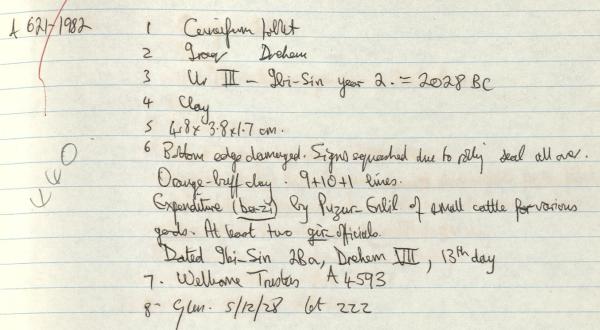 A 621-1982 1 Cuneiform tablet
2 Iraq Drehem
3 Ur III - Ibi-Sin year 2. = 2028 BC
4 Clay
5 4.8 x 3.8 x 1.7 cm.
6 Bottom edge damaged. Signs squashed due to rolling seal all over.
Orange-buff clay. 9+10+1 lines.
Expenditure (ba-zi) by Puzur-Enlil of small cattle for various
gods. At least two gir officials.
Dated Ibi-Sin 2Ba, Drehem VII, 13th day
7. Wellcome Trustees A 4593
8- 5/12/28 lot 222